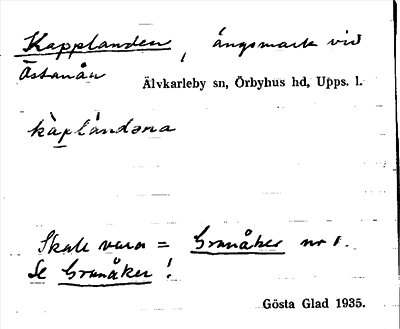 Kapplanden, ängsmark vid
Östanån
Älvkarleby sn, Örbyhus hd, Upps. l.
kàplándəna
Skall vara = Granåker nr 1.
Se Granåker!
Gösta Glad 1935.